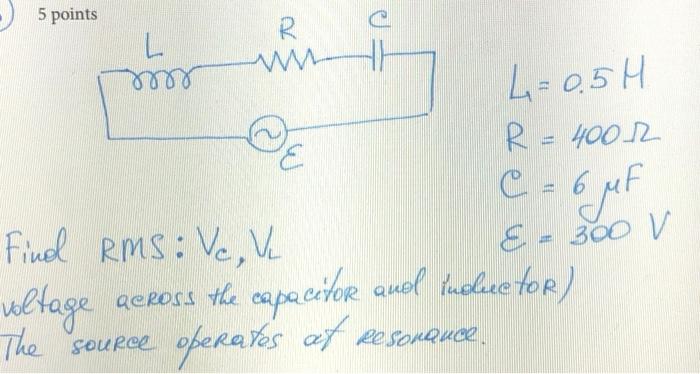 5 points
L R C
ε
L = 0.5 H
R = 400 Ω
C = 6 μF
ε = 300 V
Find RMS: Vc, VL
voltage across the capacitor and inductor)
The source operates at resonance.